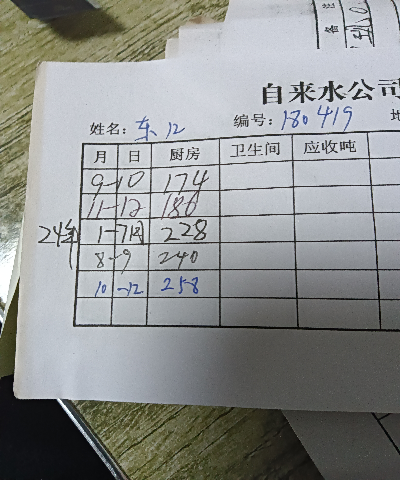 自来水公司
姓名: 东12 编号: 180419
月 日 厨房 卫生间 应收吨
9-10 174
11-12 186
24年 1-7月 228
8-9 240
10-12 258